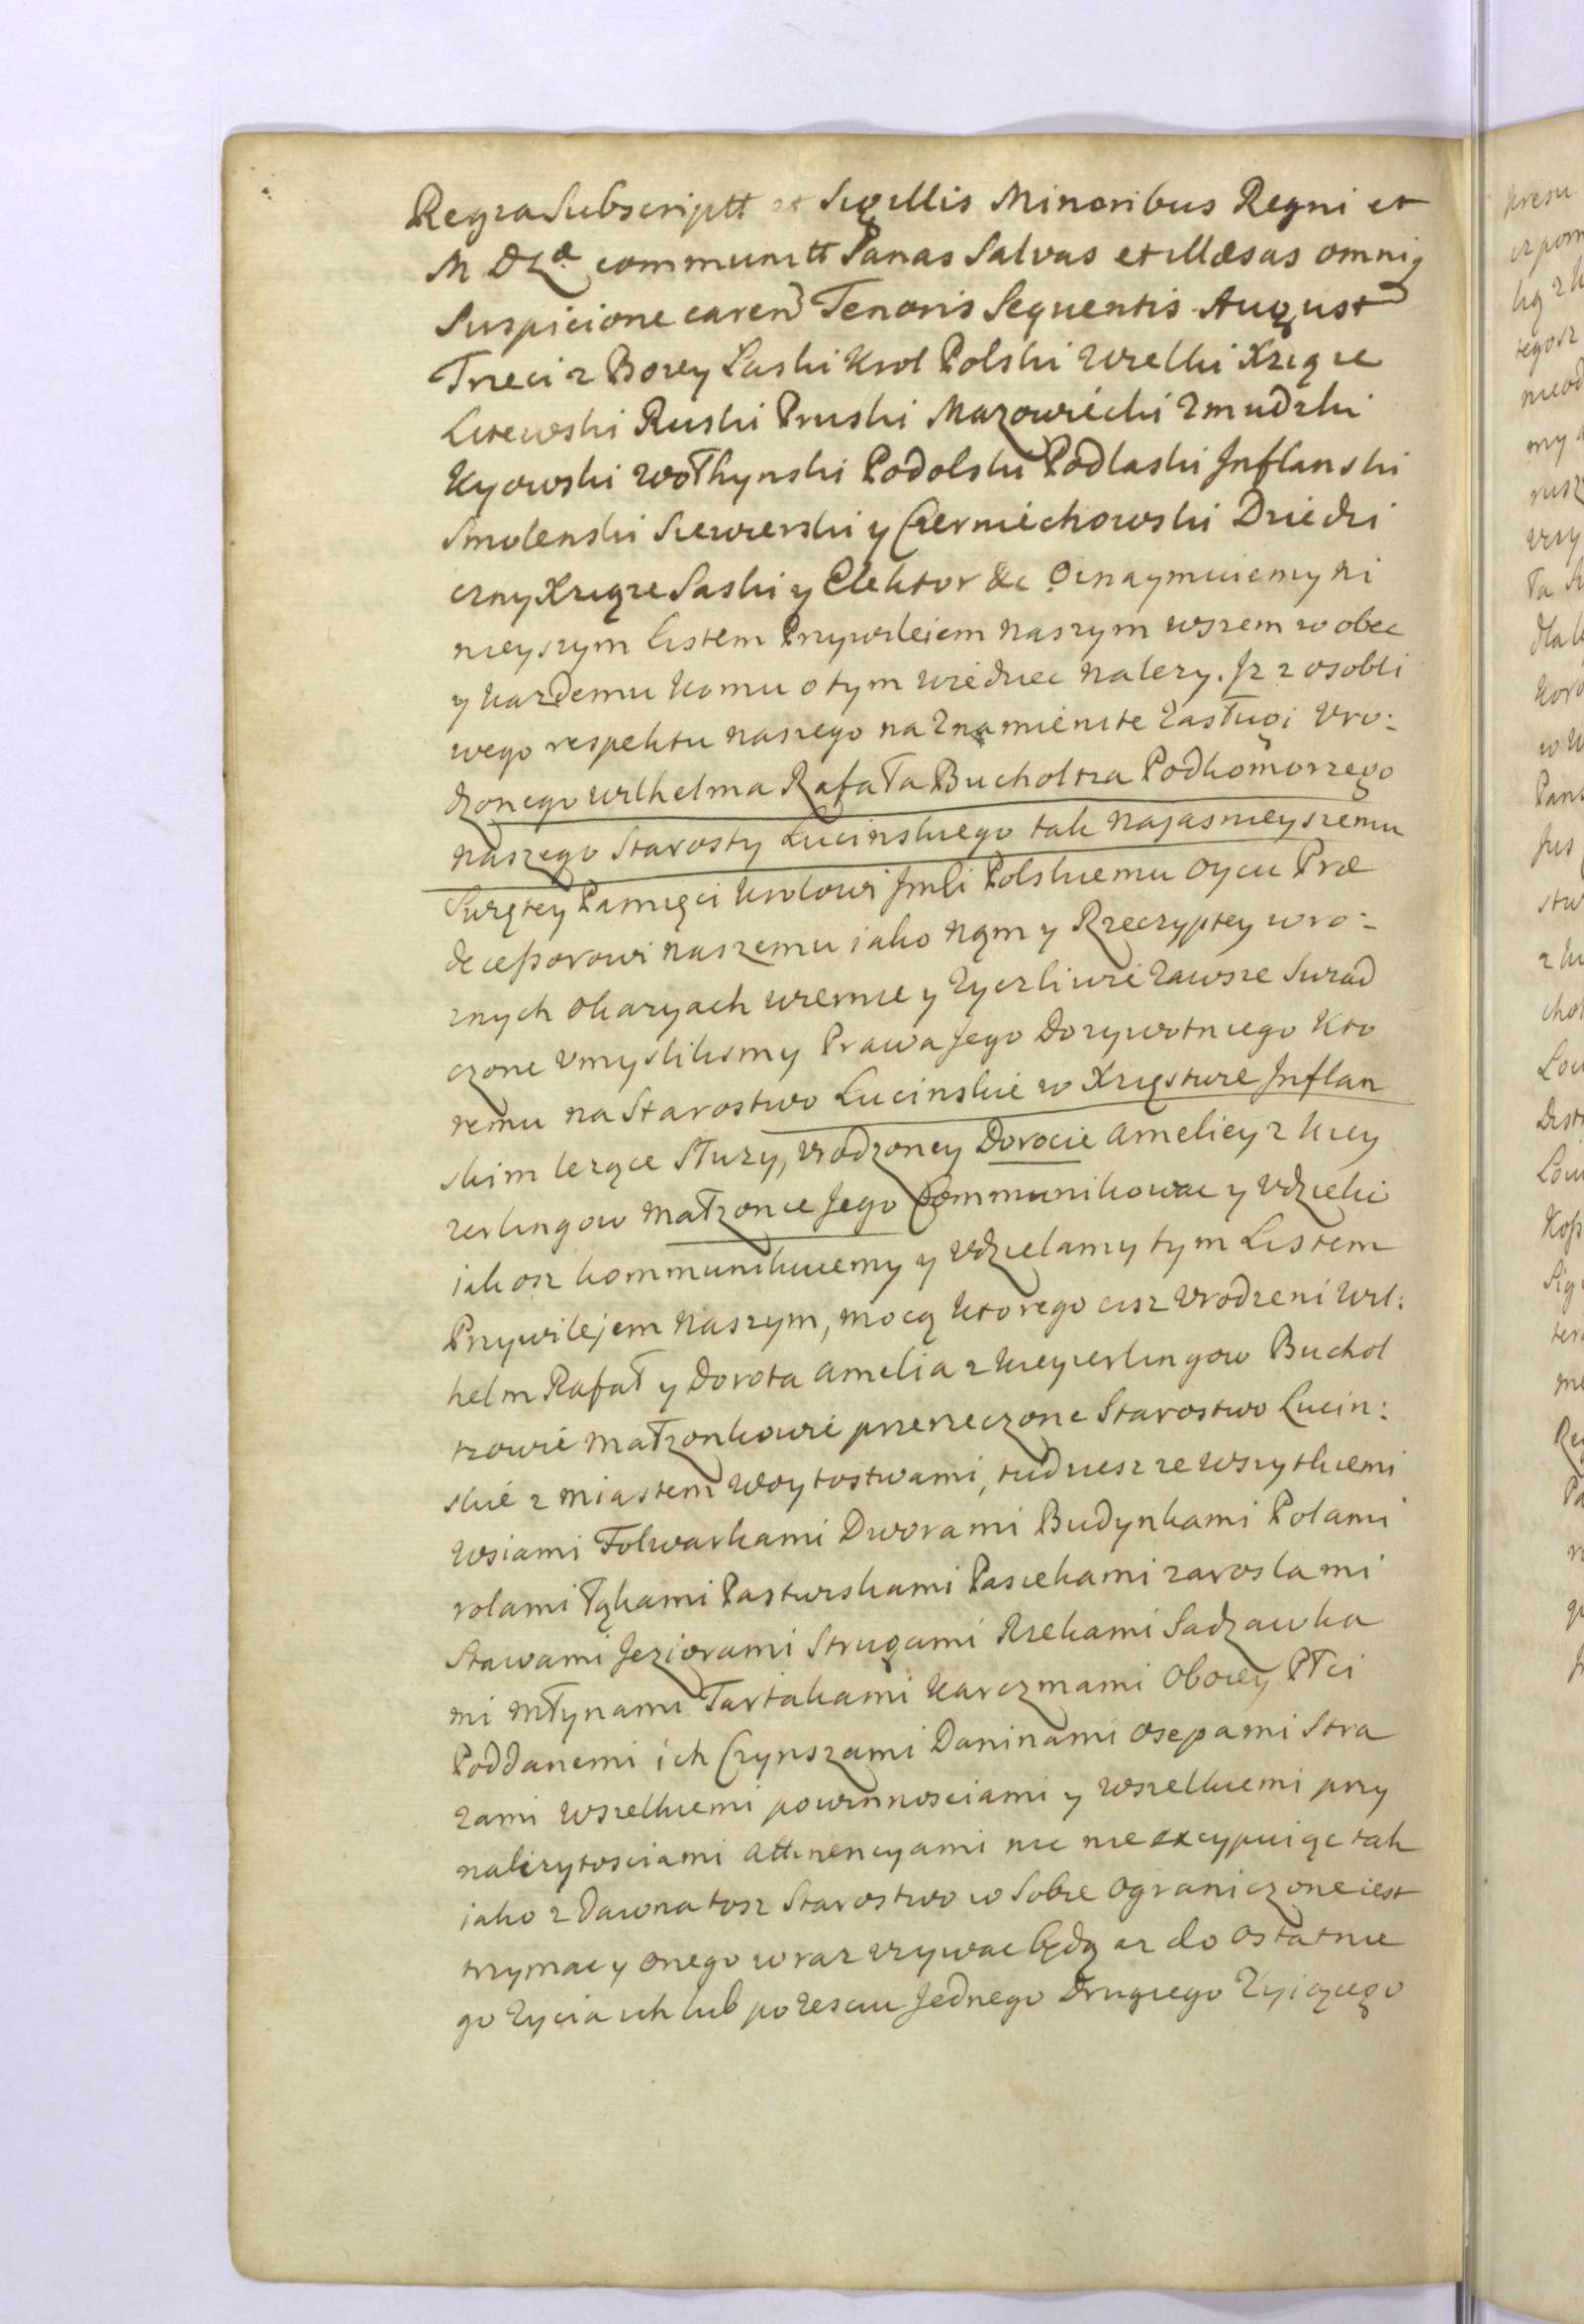 Regza Subscriptt et Sigillis Minoribus Regni et
M DLa communitt Sanas Salvas et illæsas omniq
Suspicione caren Tenoris Sequentis August
Trzeci z Bozey Łaski Krol Polski Wielki Xziąze
Litewski Ruski Pruski Mazowiecki Zmudzki
Kyowski Wołhynski Podolski Podlaski Jnflanski
Smolenski Siewierski y Czerniechowski Dziedzi
czny Xziąze Saski y Elektor &c Oznaymuiemy ni
nieyszym Listem Przywilejem naszym wszem w obec
y kazdemu komu o tym wiedziec nalezy. Jz z osobli
wego respektu naszego na Znamienite Zasługi Vro:
dzonego Wilhelma Rafała Bucholtza Podkomorzego
naszego Starosty Lucinskiego tak Najasnieyszemu
Swiętey Pamięci Krolowi Jmci Polskiemu Oycu Præ
decessorowi naszemu iako nąm y Rzeczyptey w ro:
znych okazyach wiernie y Zyczliwie Zawsze Swiad
czone Vmyslilismy Prawa Jego Dozywotniego Kto
remu na Starostwo Lucinskie w Xzięstwie Jnflan
skim lezące Słuzy, Vrodzoney Dorocie Ameliey z Key
zerlingow Małzonce Jego Communikowac y Vdzieli
iakosz kommunikuiemy y Vdzielamy tym Listem
Przywilejem Naszym, mocą ktorego cisz Vrodzeni Wil:
helm Rafał y Dorota Amelia z Keyzerlingow Buchol
tzowie Małzonkowie przerzeczone Starostwo Lucin:
skie z miastem Woytostwami, tudziesz ze wszytkiemi
Wsiami Folwarkami Dworami Budynkami Polami
rolami łąkami Pastwiskami Pasiekami zaroslami
Stawami Jeziorami Strugami Rzekami Sadzawka
mi młynami Tartakami Karczmami Oboiey Płci
Poddanemi ich Czynszami Daninami Osepami Stra
zami wszelkiemi powinnosciami y wszelkiemi przy
nalezytosciami Attinencyami nic nie excypuiąc tak
iako z Dawna tosz Starostwo w Sobie Ograniczone iest
trzymac y onego wraz vzywac będą az do Ostatnie
go Zycia ich lub po Zesciu Jednego Drugiego Zyiącego